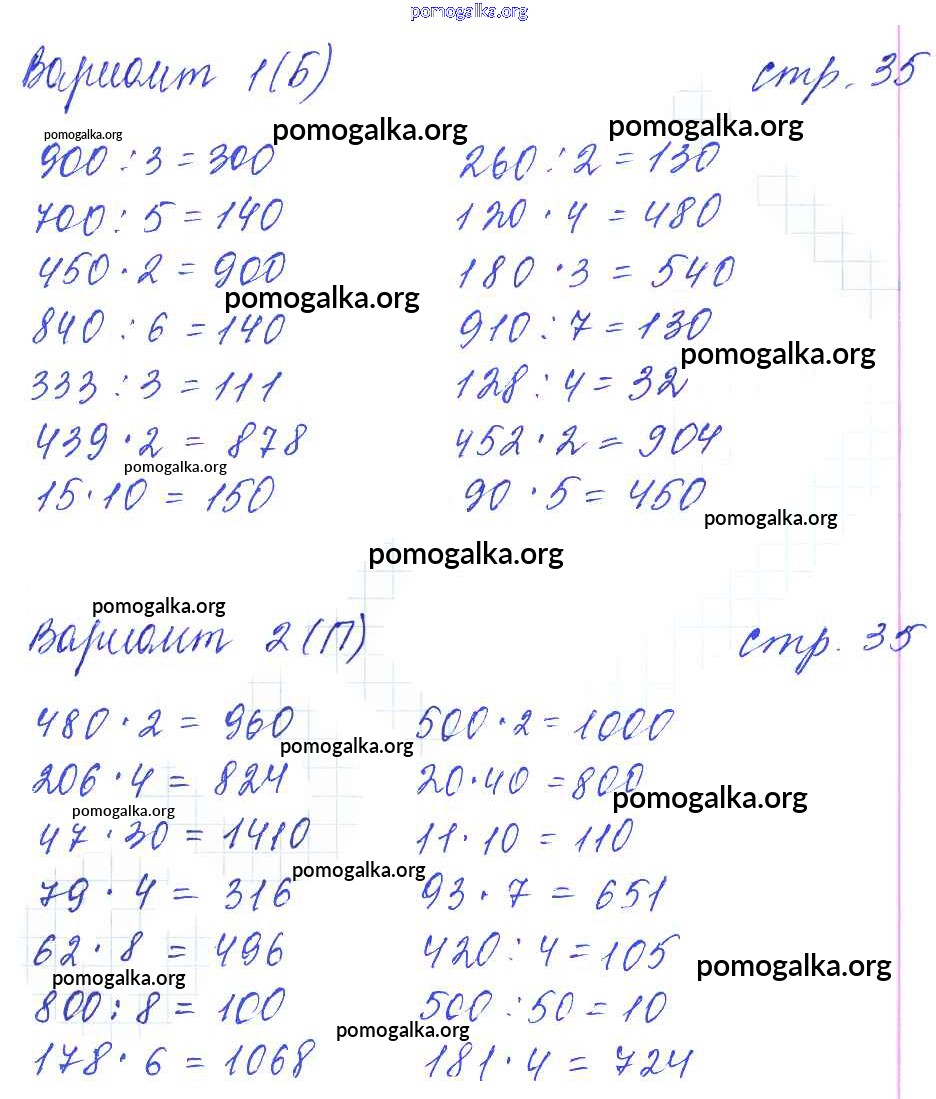 pomogalka.org
Вариант 1(Б) стр. 35
pomogalka.org pomogalka.org pomogalka.org
900 : 3 = 300 260 : 2 = 130
700 : 5 = 140 120 · 4 = 480
450 · 2 = 900 180 · 3 = 540
pomogalka.org
840 : 6 = 140 910 : 7 = 130
pomogalka.org
333 : 3 = 111 128 : 4 = 32
439 · 2 = 878 452 · 2 = 904
pomogalka.org
15 · 10 = 150 90 · 5 = 450
pomogalka.org
pomogalka.org
pomogalka.org
Вариант 2(П) стр. 35
480 · 2 = 960 500 · 2 = 1000
pomogalka.org
206 · 4 = 824 20 · 40 = 800
pomogalka.org pomogalka.org
47 · 30 = 1410 11 · 10 = 110
pomogalka.org
79 · 4 = 316 93 · 7 = 651
62 · 8 = 496 420 : 4 = 105
pomogalka.org pomogalka.org
800 : 8 = 100 500 : 50 = 10
pomogalka.org
178 · 6 = 1068 181 · 4 = 724